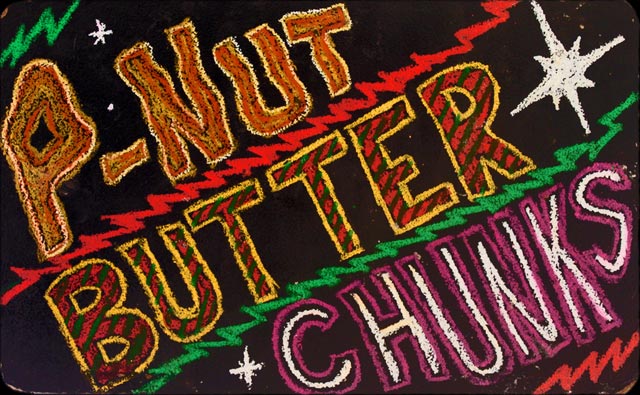 P-NUT
BUTTER
CHUNKS